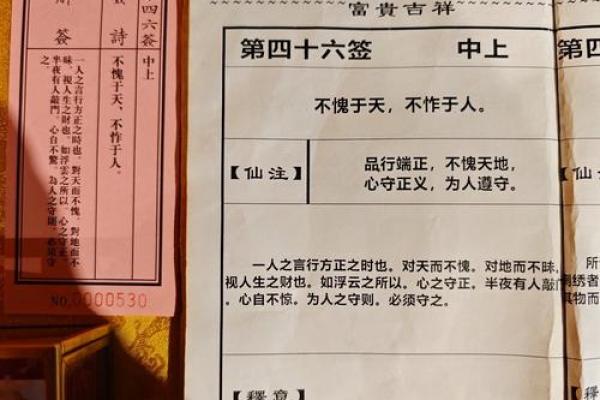 四六簽 中上
詩 不愧于天、不怍于人。
簽
一人之言行方正之時也、對天而不愧、對地而不
昧、視人生之財也、如浮雲之所以、心之守正、
半夜有人敲門、心自不驚、為人之守則、必須守
之。
NO.0000530
富貴吉祥
第四十六签 中上
不愧于天，不怍于人。
【仙注】
品行端正，不愧天地，
心守正义，为人遵守。
一人之言行方正之时也。对天而不愧。对地而不昧，
视人生之财也。如浮云之所以。心之守正。半夜有人敲
。心自不惊。为人之守则。必须守之。
【釋意】
第四
【仙
所
绣者
其物而
【釋